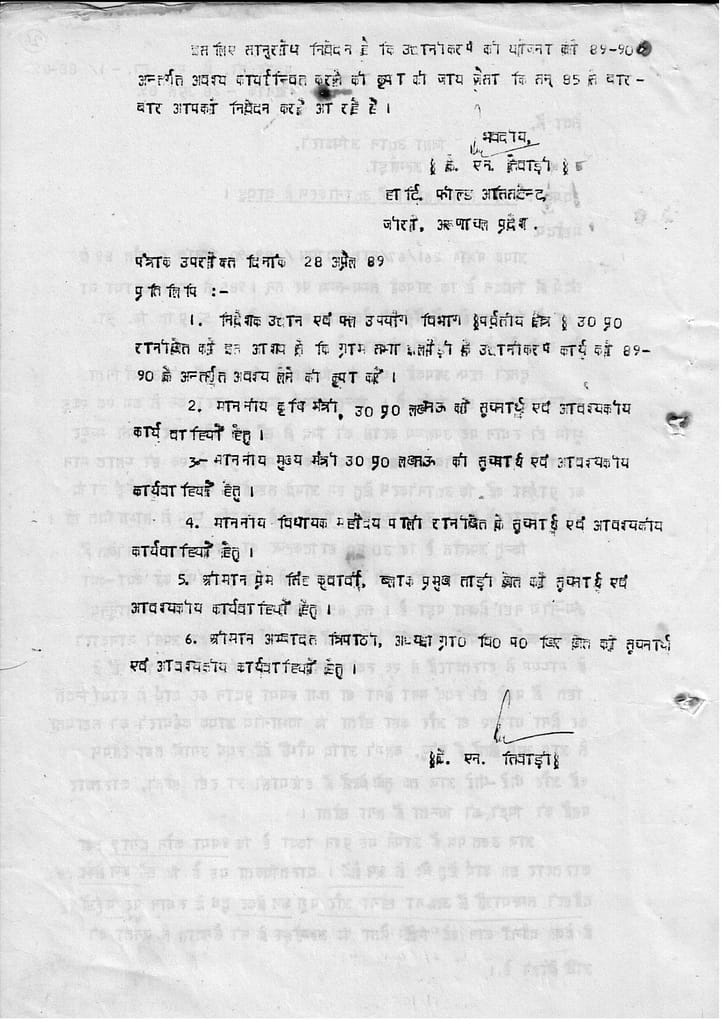 इस लिए सानुरोध निवेदन है कि उद्यानीकरण की योजना को 89-90
अन्तर्गत अवश्य कार्यान्वित करने की कृपा की जाय जैसा कि सन् 85 से बार-
बार आपको निवेदन करते आ रहे हैं ।
भवदीय,
§ के. एन. तेवाड़ी §
हार्टि. फील्ड असिस्टेन्ट,
जीरो, अरूणाचल प्रदेश.
पत्रांक उपरोक्त दिनांक 28 अप्रैल 89
प्रतिलिपि :-
1. निदेशक उद्यान एवं फल उपयोग विभाग §पर्वतीय क्षेत्र § उ0 प्र0
रानीखेत को इस आशय से कि ग्राम सभा के उद्यानीकरण कार्य को 89-
90 के अन्तर्गत अवश्य लेने की कृपा करें ।
2. माननीय कृषि मंत्री, उ0 प्र0 लखनऊ को सूचनार्थ एवं आवश्यकीय
कार्य वाहियों हेतु ।
3.- माननीय मुख्य मंत्री उ0 प्र0 लखनऊ को सूचनार्थ एवं आवश्यकीय
कार्यवाहियों हेतु ।
4. माननीय विधायक महोदय पाली रानीखेत के सूचनार्थ एवं आवश्यकीय
कार्यवाहियों हेतु ।
5. श्रीमान प्रेम सिंह कुवार्वी, ब्लाक प्रमुख ताड़ी खेत को सूचनार्थ एवं
आवश्यकीय कार्यवाहियों हेतु ।
6. श्रीमान अम्बादत त्रिपाठी, अध्यक्ष ग्रा0 वि0 प0 खेत को सूचनार्थ
एवं आवश्यकीय कार्यवाहियों हेतु ।
§के. एन. तिवाड़ी§